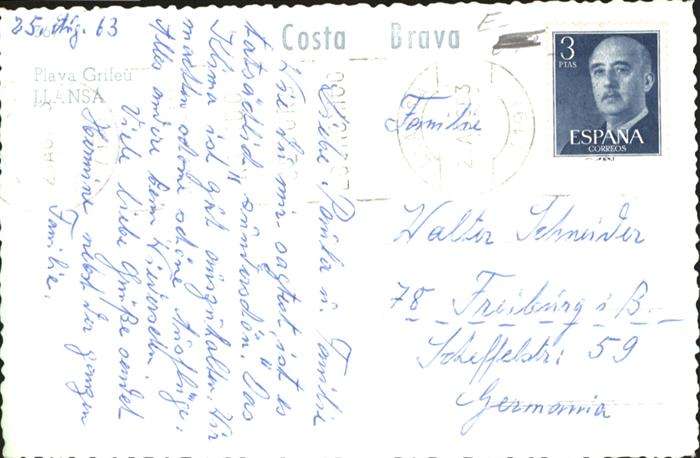 25. Aug. 63
Costa Brava
Playa Grifeu
LLANSÁ
Liebe Familie
Wie du mir sagtest, ist es
tatsächlich "wunderschön." Das
Klima ist gut auszuhalten. Wir
machten schöne Ausflüge,
Alles andere beim Wiedersehn.
Viele liebe Grüße sendet
Hermine nebst der ganzen
Familie.
3
PTAS
ESPAÑA
CORREOS
Familie
Walter Schneider
78 Freiburg i B.
Scheffelstr. 59
Germania